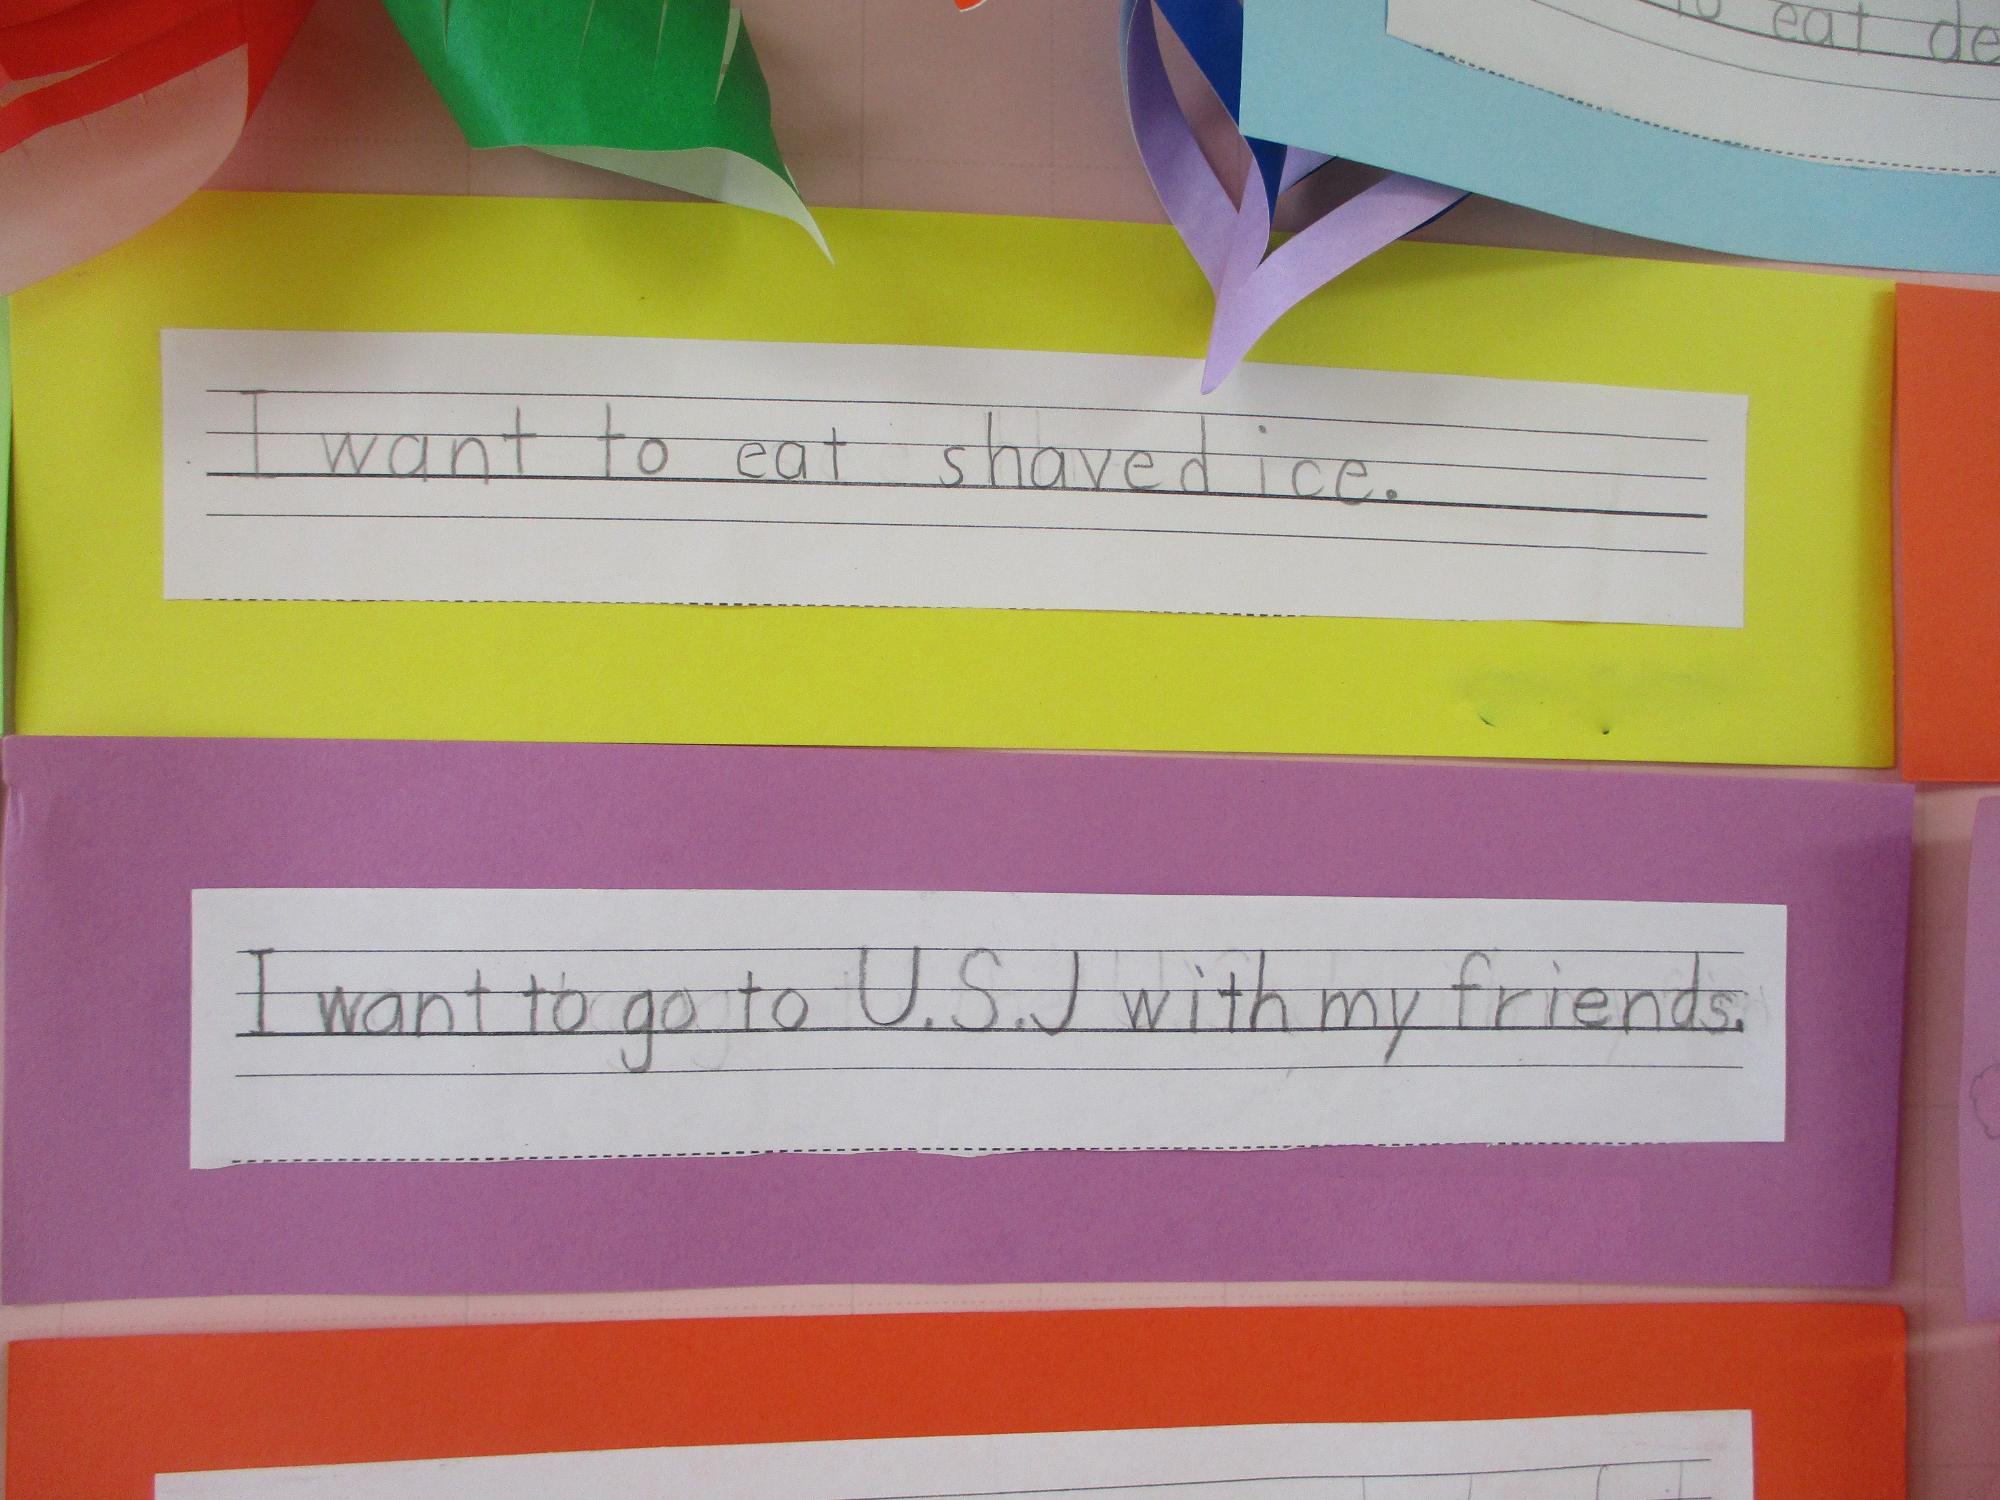 to eat de
I want to eat shaved ice.
I want to go to U.S.J with my friends.